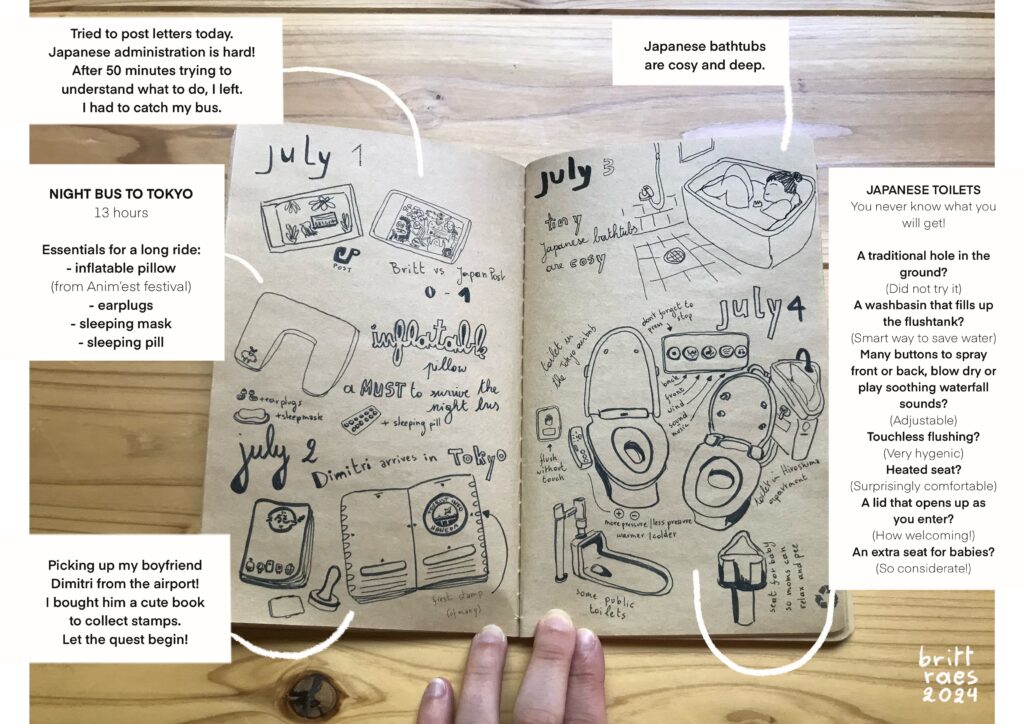 Tried to post letters today.
Japanese administration is hard!
After 50 minutes trying to
understand what to do, I left.
I had to catch my bus.
NIGHT BUS TO TOKYO
13 hours
Essentials for a long ride:
- inflatable pillow
(from Anim'est festival)
- earplugs
- sleeping mask
- sleeping pill
Picking up my boyfriend
Dimitri from the airport!
I bought him a cute book
to collect stamps.
Let the quest begin!
july 1
POST
Britt vs Japan Post
0 - 1
inflatable
pillow
a MUST to survive the
night bus
+earplugs
+sleepmask
+ sleeping pill
july 2
Dimitri arrives in Tokyo
TOURIST INFO
HANEDA
first stamp
(of many)
july 3
tiny
Japanese bathtubs
are cosy
july 4
don't forget to
press stop
toilet in
the Tokyo airbnb
back
front
wind
sound
music
flush
without
touch
more pressure / less pressure
warmer / colder
toilet in Hiroshima
apartment
some public
toilets
seat for baby
so moms can
relax and pee
Japanese bathtubs
are cosy and deep.
JAPANESE TOILETS
You never know what you
will get!
A traditional hole in the
ground?
(Did not try it)
A washbasin that fills up
the flushtank?
(Smart way to save water)
Many buttons to spray
front or back, blow dry or
play soothing waterfall
sounds?
(Adjustable)
Touchless flushing?
(Very hygenic)
Heated seat?
(Surprisingly comfortable)
A lid that opens up as
you enter?
(How welcoming!)
An extra seat for babies?
(So considerate!)
britt
raes
2024